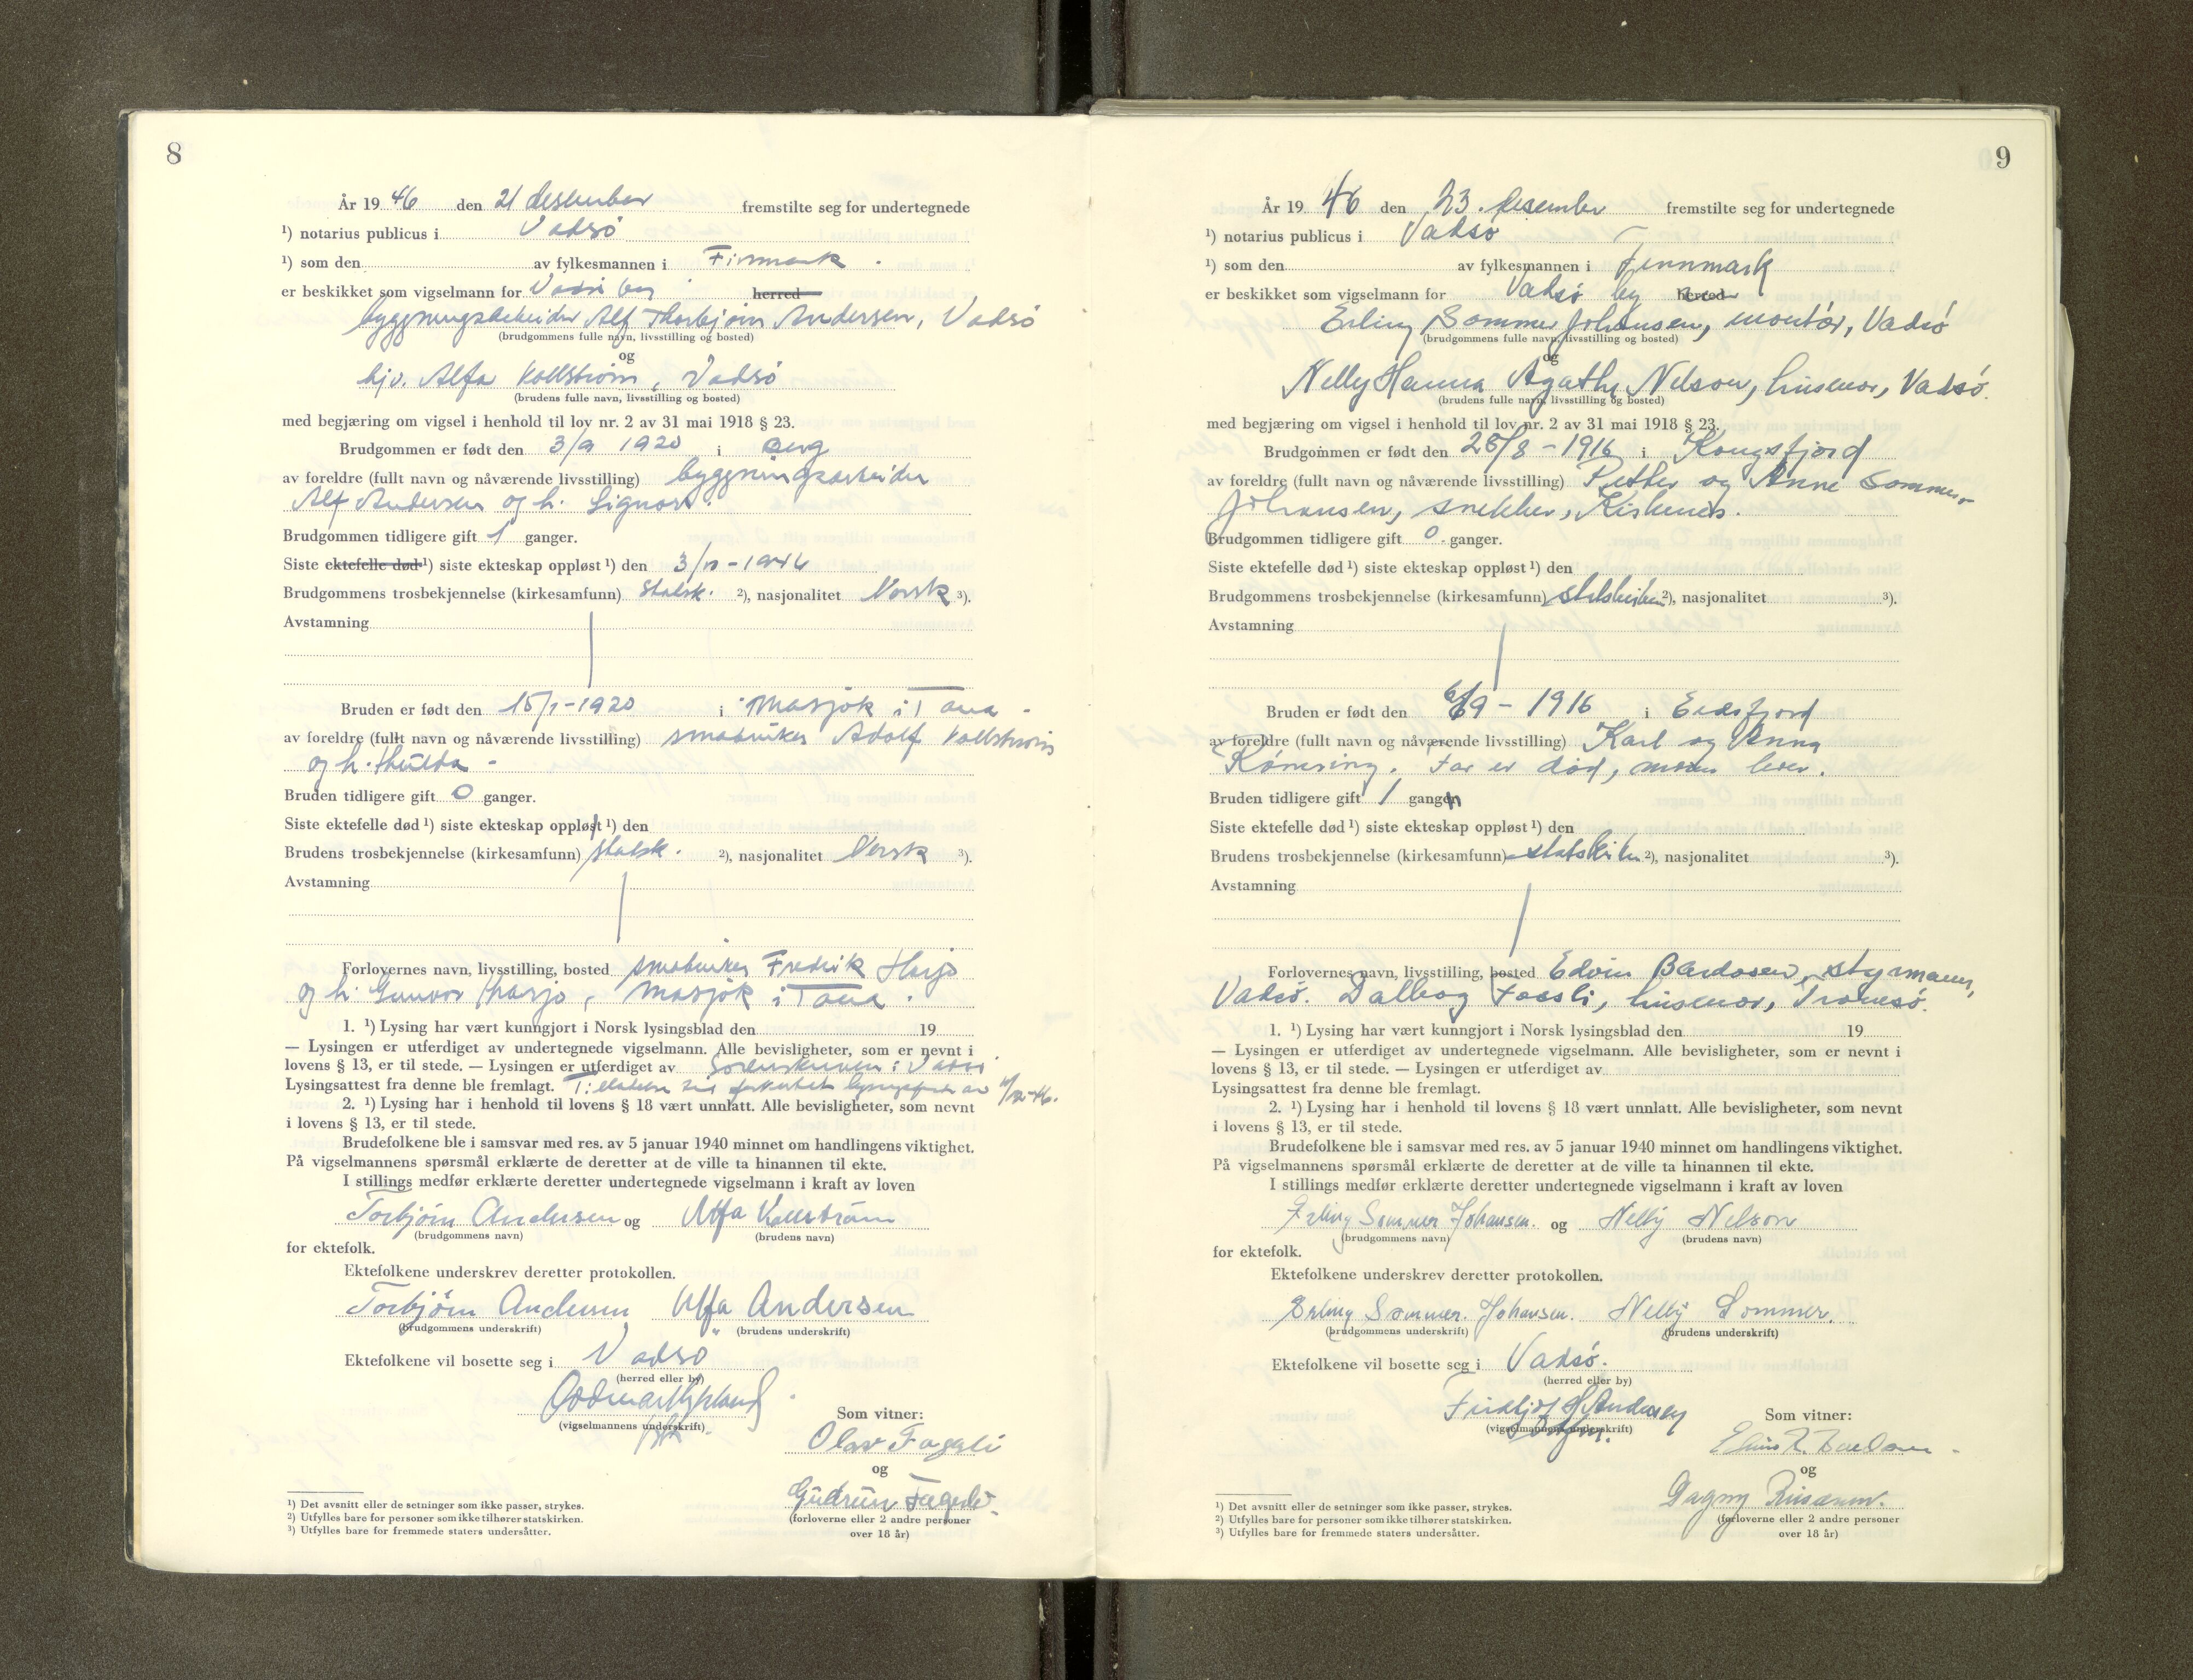 8
År 19 46 den 21 desember fremstilte seg for undertegnede
¹) notarius publicus i Vadsö
¹) som den av fylkesmannen i Finmark.
er beskikket som vigselmann for Vadsö by herred
byggningsarbeider Alf Thorbjörn Andersen, Vadsö
(brudgommens fulle navn, livsstilling og bosted)
og
hjv. Alfa Kollström, Vadsö
(brudens fulle navn, livsstilling og bosted)
med begjæring om vigsel i henhold til lov nr. 2 av 31 mai 1918 § 23.
Brudgommen er født den 3/9 1920 i Berg
av foreldre (fullt navn og nåværende livsstilling) byggningsarbeider
Alf Andersen og h. Signora.
Brudgommen tidligere gift 1 ganger.
Siste ektefelle død ¹) siste ekteskap oppløst ¹) den
Brudgommens trosbekjennelse (kirkesamfunn) Statsk. ²), nasjonalitet Norsk ³).
Avstamning
Bruden er født den 15/1-1920 i Masjok i Tana -
av foreldre (fullt navn og nåværende livsstilling) småbruker Adolf Kollström
og h. Hulda -
Bruden tidligere gift 0 ganger.
Siste ektefelle død ¹) siste ekteskap oppløst ¹) den
Brudens trosbekjennelse (kirkesamfunn) Statsk. ²), nasjonalitet Norsk ³).
Avstamning
Forlovernes navn, livsstilling, bosted småbruker Fredrik Harjo
og h. Gunvor Harjo, Masjok i Tana.
1. ¹) Lysing har vært kunngjort i Norsk lysingsblad den 19
— Lysingen er utferdiget av undertegnede vigselmann. Alle bevisligheter, som er nevnt i
lovens § 13, er til stede. — Lysingen er utferdiget av Sorenskriveren i Vadsö
Lysingsattest fra denne ble fremlagt. Tillatelse til forkortet lysingsfrist av /12-46.
2. ¹) Lysing har i henhold til lovens § 18 vært unnlatt. Alle bevisligheter, som nevnt
i lovens § 13, er til stede.
Brudefolkene ble i samsvar med res. av 5 januar 1940 minnet om handlingens viktighet.
På vigselmannens spørsmål erklærte de deretter at de ville ta hinannen til ekte.
I stillings medfør erklærte deretter undertegnede vigselmann i kraft av loven
Torbjörn Andersen og Alfa Kollström
(brudgommens navn) (brudens navn)
for ektefolk.
Ektefolkene underskrev deretter protokollen.
Torbjörn Andersen Alfa Andersen
(brudgommens underskrift) (brudens underskrift)
Ektefolkene vil bosette seg i Vadsö
(herred eller by)
(vigselmannens underskrift)
Som vitner:
Olav Fagerli
og
Gudrun Fagerli
(forloverne eller 2 andre personer
over 18 år)
¹) Det avsnitt eller de setninger som ikke passer, strykes.
²) Utfylles bare for personer som ikke tilhører statskirken.
³) Utfylles bare for fremmede staters undersåtter.
9
År 19 46 den 23. desember fremstilte seg for undertegnede
¹) notarius publicus i Vadsö
¹) som den av fylkesmannen i Finnmark
er beskikket som vigselmann for Vadsö by herred
Erling Sommer Johansen, montör, Vadsö
(brudgommens fulle navn, livsstilling og bosted)
og
Nelly Hanna Agathe Nelson, husmor, Vadsö.
(brudens fulle navn, livsstilling og bosted)
med begjæring om vigsel i henhold til lov nr. 2 av 31 mai 1918 § 23.
Brudgommen er født den 28/8-1916 i Kongsfjord
av foreldre (fullt navn og nåværende livsstilling) Petter og Anne Sommer-
Johansen, snekker, Kirkenes.
Brudgommen tidligere gift 0 ganger.
Siste ektefelle død ¹) siste ekteskap oppløst ¹) den
Brudgommens trosbekjennelse (kirkesamfunn) statskirken ²), nasjonalitet ³).
Avstamning
Bruden er født den 6/9 - 1916 i Eidsfjord
av foreldre (fullt navn og nåværende livsstilling) Karl og Anna
Far er död, moren lever.
Bruden tidligere gift 1 gang
Siste ektefelle død ¹) siste ekteskap oppløst ¹) den
Brudens trosbekjennelse (kirkesamfunn) statskirken ²), nasjonalitet ³).
Avstamning
Forlovernes navn, livsstilling, bosted Edvin Bardosen, styrmann,
Vadsö. Dalbog Fossli, husmor, Tromsö.
1. ¹) Lysing har vært kunngjort i Norsk lysingsblad den 19
— Lysingen er utferdiget av undertegnede vigselmann. Alle bevisligheter, som er nevnt i
lovens § 13, er til stede. — Lysingen er utferdiget av
Lysingsattest fra denne ble fremlagt.
2. ¹) Lysing har i henhold til lovens § 18 vært unnlatt. Alle bevisligheter, som nevnt
i lovens § 13, er til stede.
Brudefolkene ble i samsvar med res. av 5 januar 1940 minnet om handlingens viktighet.
På vigselmannens spørsmål erklærte de deretter at de ville ta hinannen til ekte.
I stillings medfør erklærte deretter undertegnede vigselmann i kraft av loven
Erling Sommer Johansen. og Nelly Nelson
(brudgommens navn) (brudens navn)
for ektefolk.
Ektefolkene underskrev deretter protokollen.
Erling Sommer. Johansen. Nelly Sommer.
(brudgommens underskrift) (brudens underskrift)
Ektefolkene vil bosette seg i Vadsö.
(herred eller by)
Fridtjof H Andersen
(vigselmannens underskrift)
Som vitner:
og
Dagny
(forloverne eller 2 andre personer
over 18 år)
¹) Det avsnitt eller de setninger som ikke passer, strykes.
²) Utfylles bare for personer som ikke tilhører statskirken.
³) Utfylles bare for fremmede staters undersåtter.